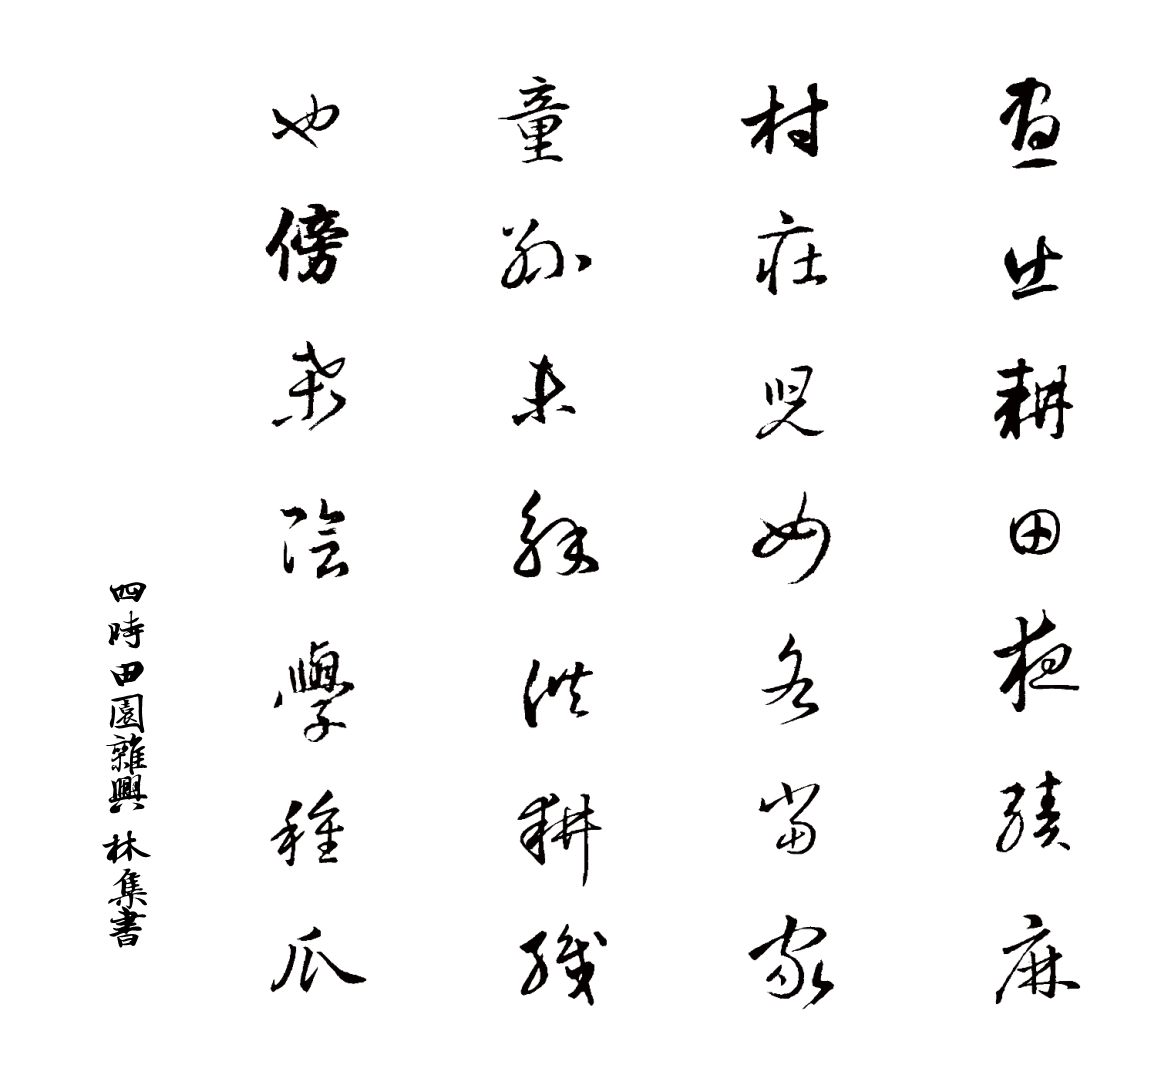 晝出耕田夜績麻
村庄児女各當家
童孫未解供耕織
也傍桑陰學種瓜
四時田園雜興 林集書